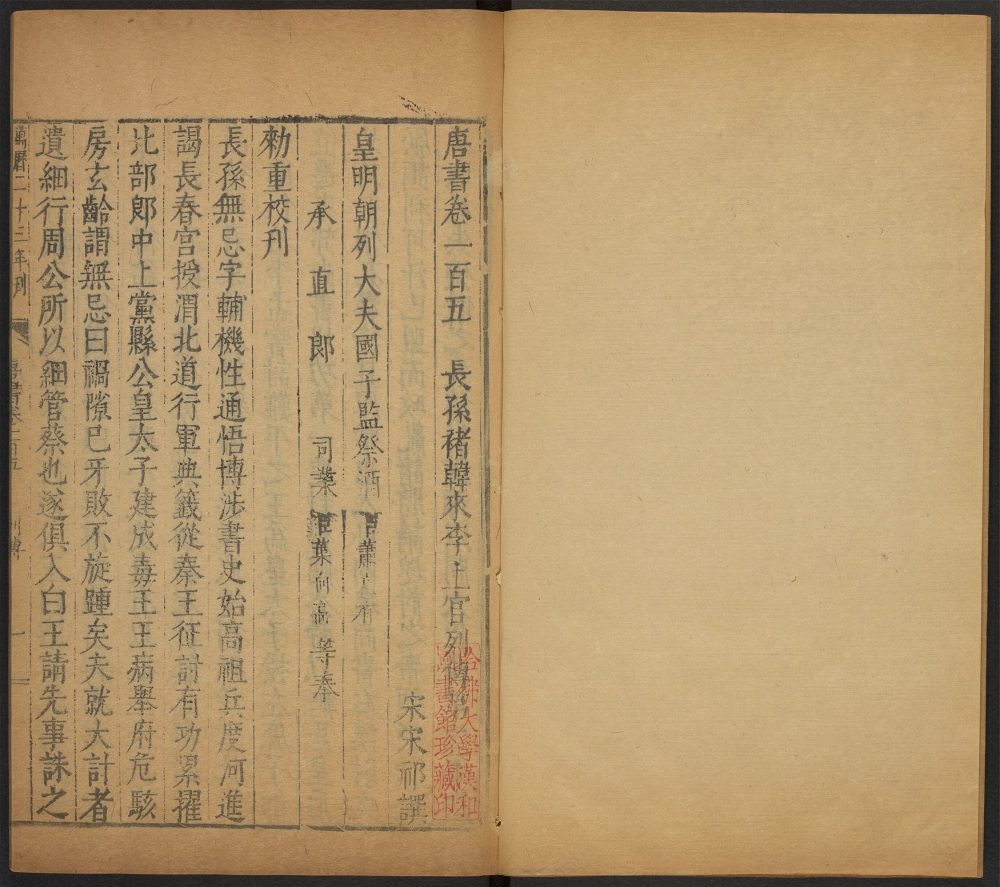 唐書卷一百五　長孫褚韓來李上官列傳
宋宋祁譔
皇明朝列大夫國子監祭酒臣蕭
承直郎司業臣葉向高等奉
勅重校刊
長孫無忌字輔機性通悟博涉書史始高祖兵度河進
謁長春宮授渭北道行軍典籤從秦王征討有功累擢
比部郎中上黨縣公皇太子建成毒王王病舉府危駭
房玄齡謂無忌曰禍隙已牙敗不旋踵矣夫就大計者
遺細行周公所以絀管蔡也遂俱入白王請先事誅之
萬曆二十三年刊
唐書卷一百五
列傳
一
哈佛大學漢和
圖書館珍藏印